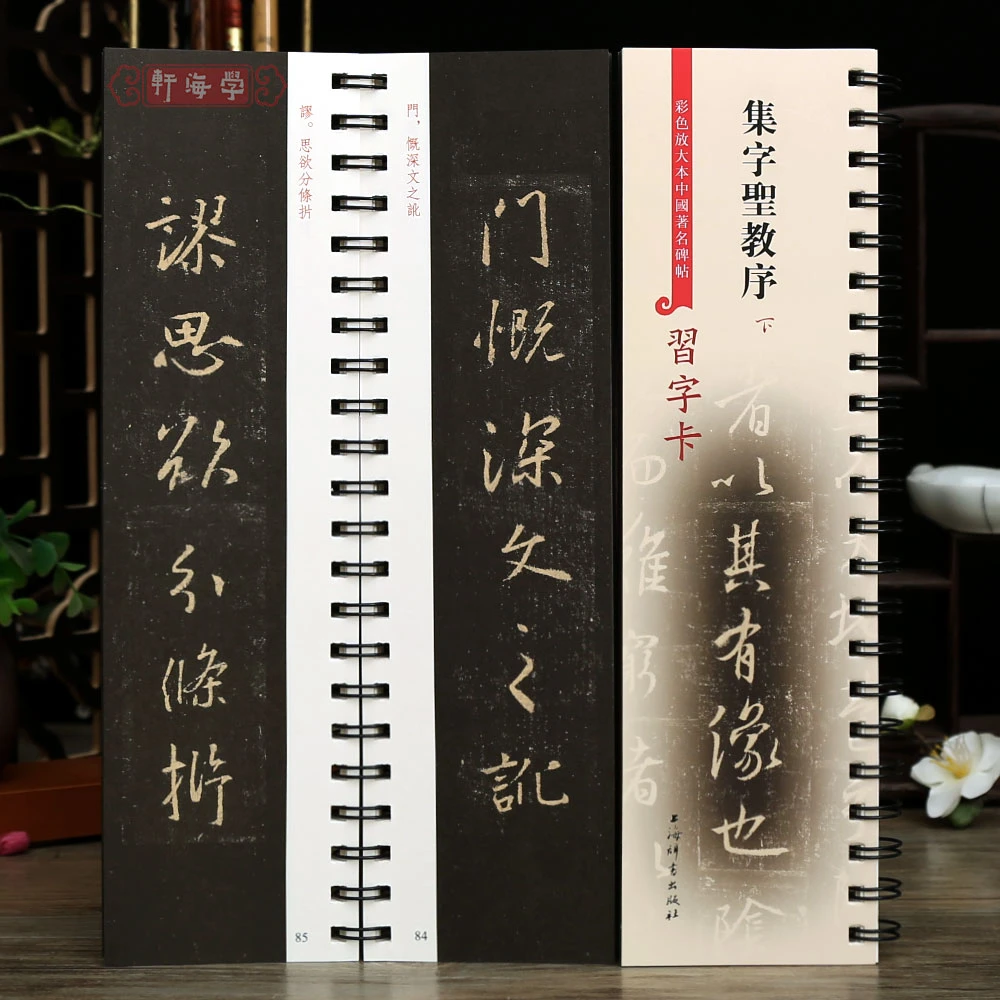 軒海学
門，慨深文之訛
謬。思欲分條㭊
门慨深文之訛
謬思欲分條㭊
84
85
彩色放大本中國著名碑帖
集字聖教序
下
習字卡
者以其有像也陰
而惟窮者
上海辞书出版社